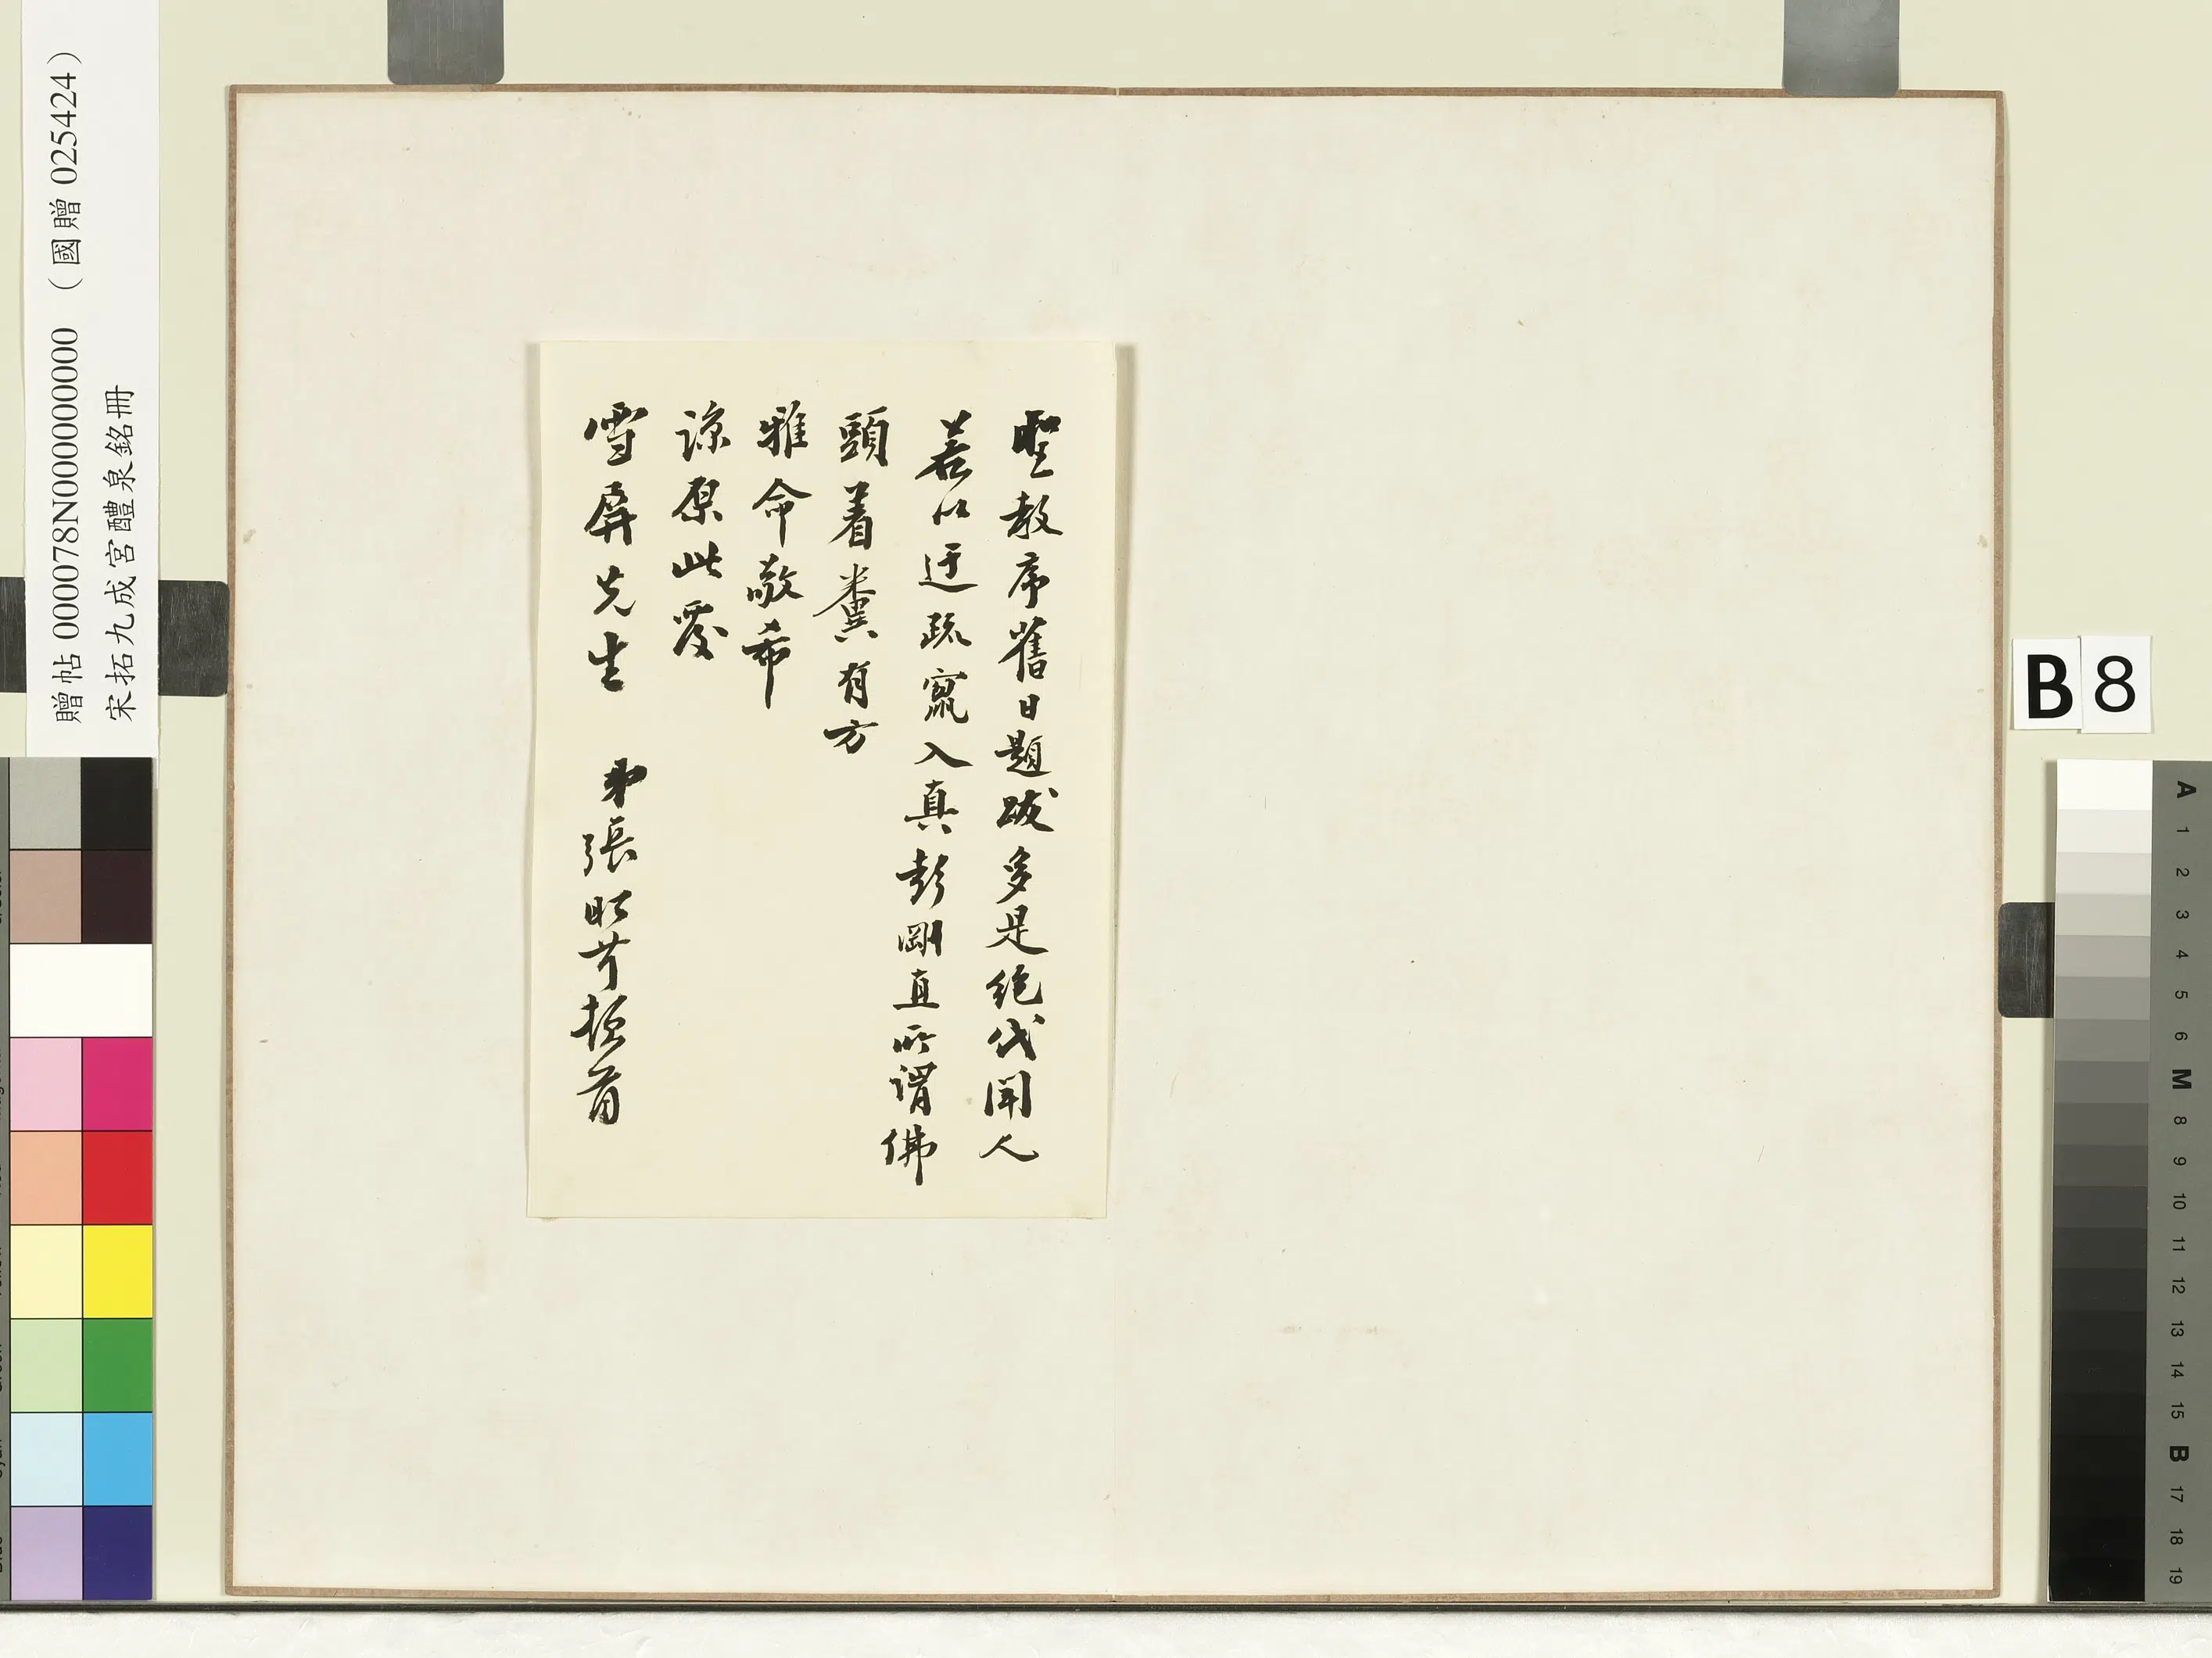 聖教序舊日題跋多是絕代聞人
若以迂疏竄入真彭剛直所謂佛
頭着糞有方
雅命敬希
諒原此覆
雪屏先生 弟張昭芹頓首
贈帖 000078N000000000 （國贈 025424）
宋拓九成宮醴泉銘冊
B 8
A
1
2
3
4
5
6
M
8
9
10
11
12
13
14
15
B
17
18
19